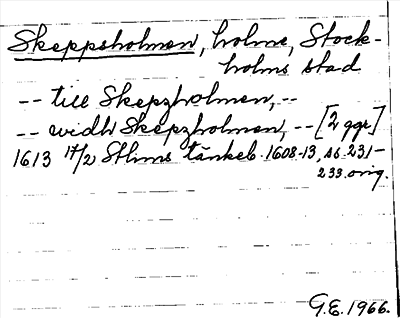 Skeppsholmen, holme, Stock-
holms stad
-- till Skepzholmen, --
-- widh Skepzholmen, -- [2 ggr]
1613 17/2 Sthms tänkeb. 1608-13, s. 231-
233. orig.
G.E. 1966.